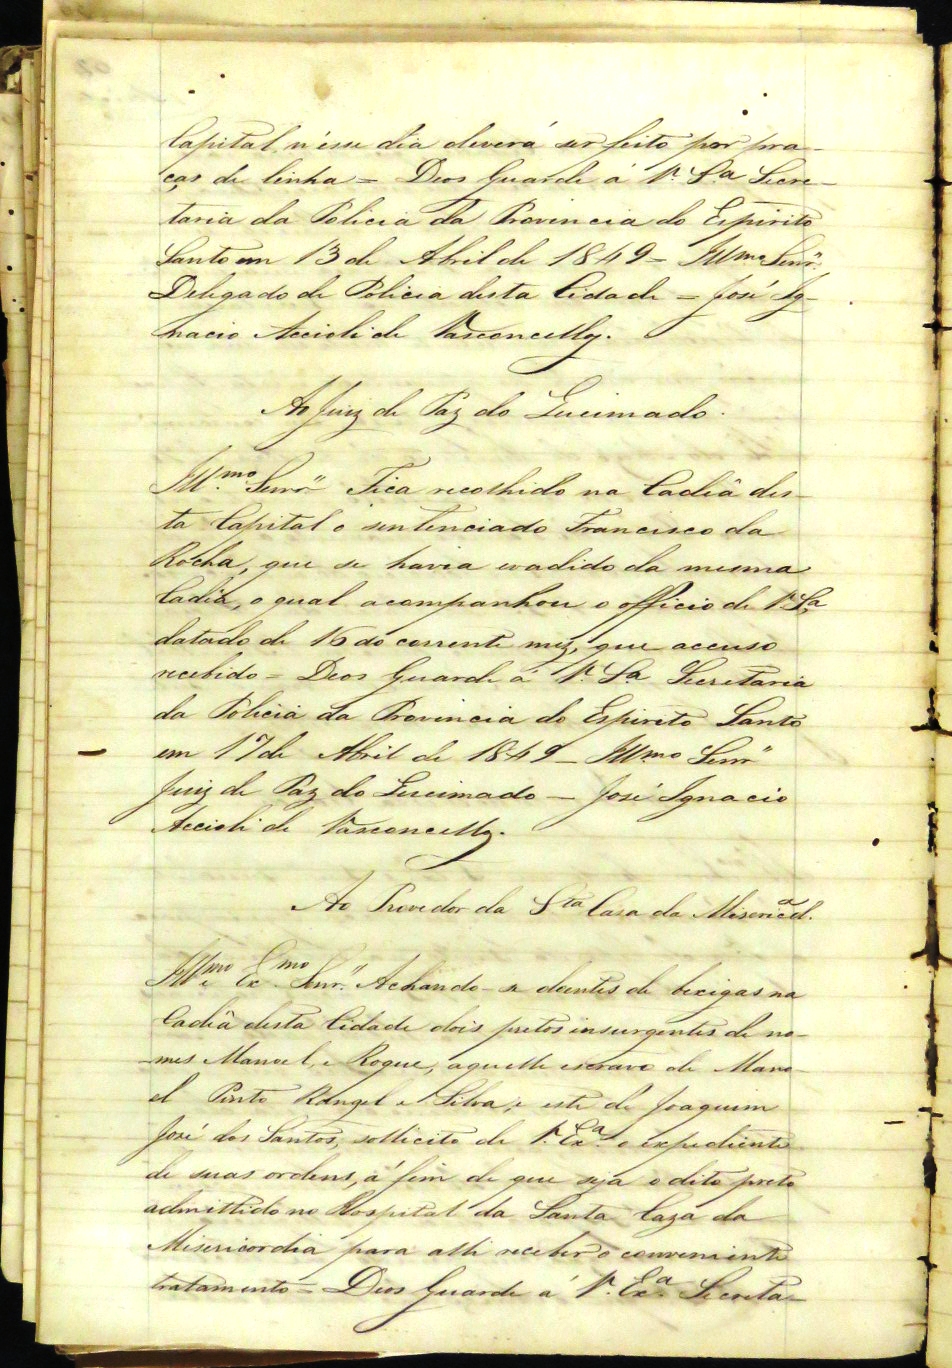 Capital, n'ésse dia deverá ser feito por pra-
ças de linha = Deos Guarde á V. Sa Secre-
taria da Policia da Provincia do Espirito
Santo em 13 de Abril de 1849 - Illmo Senr.
Delegado de Policia desta Cidade - José Ig-
nacio Accioli de Vasconcellos.
Ao Juiz de Paz do Queimado.
Illmo Senr Fica recolhido na Cadêa des-
ta Capital o sentenciado Francisco da
Rocha, que se havia evadido da mesma
Cadêa, o qual acompanhou o officio de V. Sa,
datado de 16 do corrente mez, que accuso
recebido = Deos Guarde á V. Sa Secretaria
da Policia da Provincia do Espirito Santo
em 17 de Abril de 1849 - Illmo Senr
Juiz de Paz do Queimado - José Ignacio
Accioli de Vasconcellos.
Ao Provedor da Sta Casa da Misericad.
Illmo e Exmo Senr. Achando-se doentes de bexigas na
Cadêa desta Cidade dois pretos insurgentes de no-
-mes Manoel, e Roque, aquelle escravo de Mano-
el Pinto Rangel e Silva, e este de Joaquim
José dos Santos, sollicito de V. Exa o expediente
de suas ordens, á fim de que seja o dito preto
admittido no Hospital da Santa Caza da
Misericordia para alli receber o conveniente
tratamento = Deos Guarde á V. Exa Secreta-